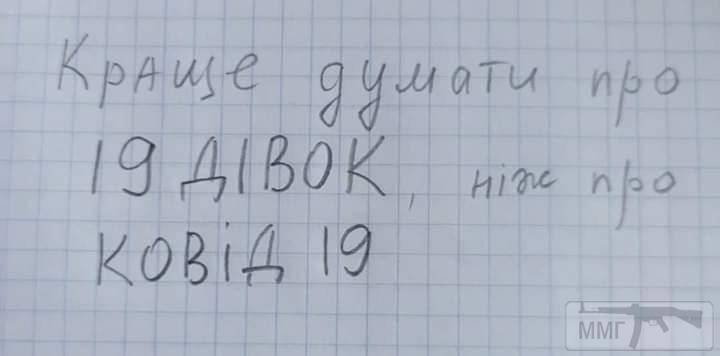 Краще думати про
19 ДІВОК, ніж про
КОВІД 19
ММГ